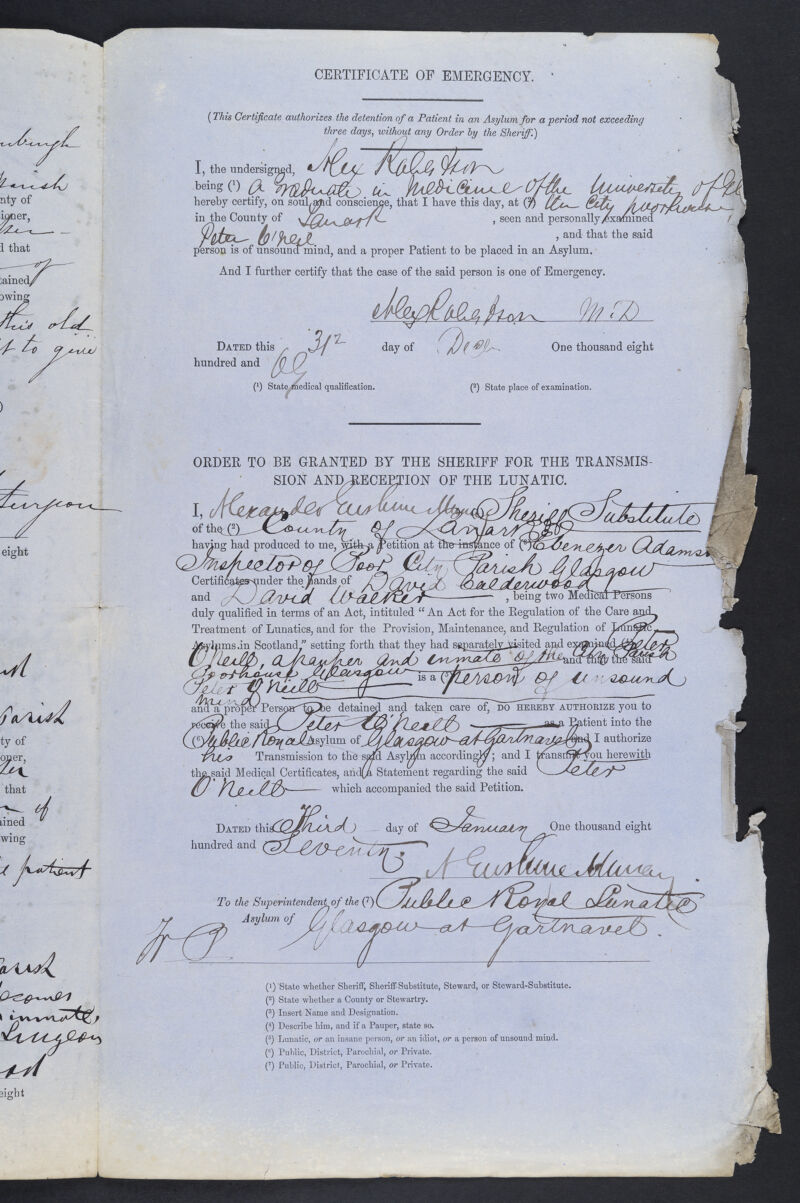 CERTIFICATE OF EMERGENCY.
(This Certificate authorizes the detention of a Patient in an Asylum for a period not exceeding
three days, without any Order by the Sheriff.)
I, the undersigned, Alex Robertson
being (¹) A Graduate in Medicine of the University of Gl
hereby certify, on soul and conscience, that I have this day, at (²) the City poorhouse,
in the County of Lanark , seen and personally examined
Peter O'Neil , and that the said
person is of unsound mind, and a proper Patient to be placed in an Asylum.
And I further certify that the case of the said person is one of Emergency.
Alex Robertson M.D
DATED this 31st day of Decr One thousand eight
hundred and
(¹) State medical qualification. (²) State place of examination.
ORDER TO BE GRANTED BY THE SHERIFF FOR THE TRANSMIS-
SION AND RECEPTION OF THE LUNATIC.
I, Alexander Erskine Murray Sheriff Substitute
of the (²) County of Lanark
having had produced to me, with a Petition at the instance of (³) Ebenezer Adamson
Inspector of Poor City Parish Glasgow
Certificates under the hands of David Calderwood
and David Walker , being two Medical Persons
duly qualified in terms of an Act, intituled "An Act for the Regulation of the Care and
Treatment of Lunatics, and for the Provision, Maintenance, and Regulation of Lunatic
Asylums in Scotland," setting forth that they had separately visited and examined (⁴) Peter
O'Neill, a pauper and inmate of the City Parish
Poorhouse Glasgow and that the said
Peter O'Neill is a (⁵) person of unsound
mind
and a proper Person to be detained and taken care of, DO HEREBY AUTHORIZE you to
receive the said Peter O'Neill as a Patient into the
(⁶) Public Royal Asylum of Glasgow at Gartnavel and I authorize
his Transmission to the said Asylum accordingly; and I transmit you herewith
the said Medical Certificates, and a Statement regarding the said Peter
O'Neill which accompanied the said Petition.
DATED this Third day of January One thousand eight
hundred and Seventy.
A Erskine Murray
To the Superintendent of the (⁷) Public Royal Lunatic
Asylum of Glasgow at Gartnavel.
(¹) State whether Sheriff, Sheriff-Substitute, Steward, or Steward-Substitute.
(²) State whether a County or Stewartry.
(³) Insert Name and Designation.
(⁴) Describe him, and if a Pauper, state so.
(⁵) Lunatic, or an insane person, or an idiot, or a person of unsound mind.
(⁶) Public, District, Parochial, or Private.
(⁷) Public, District, Parochial, or Private.